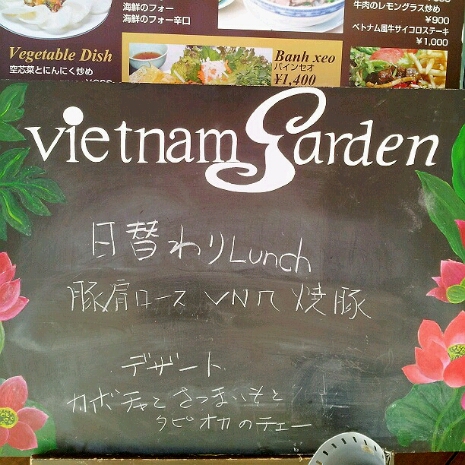 海鮮のフォー
海鮮のフォー辛口
Vegetable Dish
空芯菜とにんにく炒め
Banh xeo
バインセオ
¥1,400
牛肉のレモングラス炒め
¥900
ベトナム風牛サイコロステーキ
¥1,000
vietnam Garden
日替わりLunch
豚肩ロース VN 焼豚
デザート
カボチャとさつまいもと
タピオカのチェー